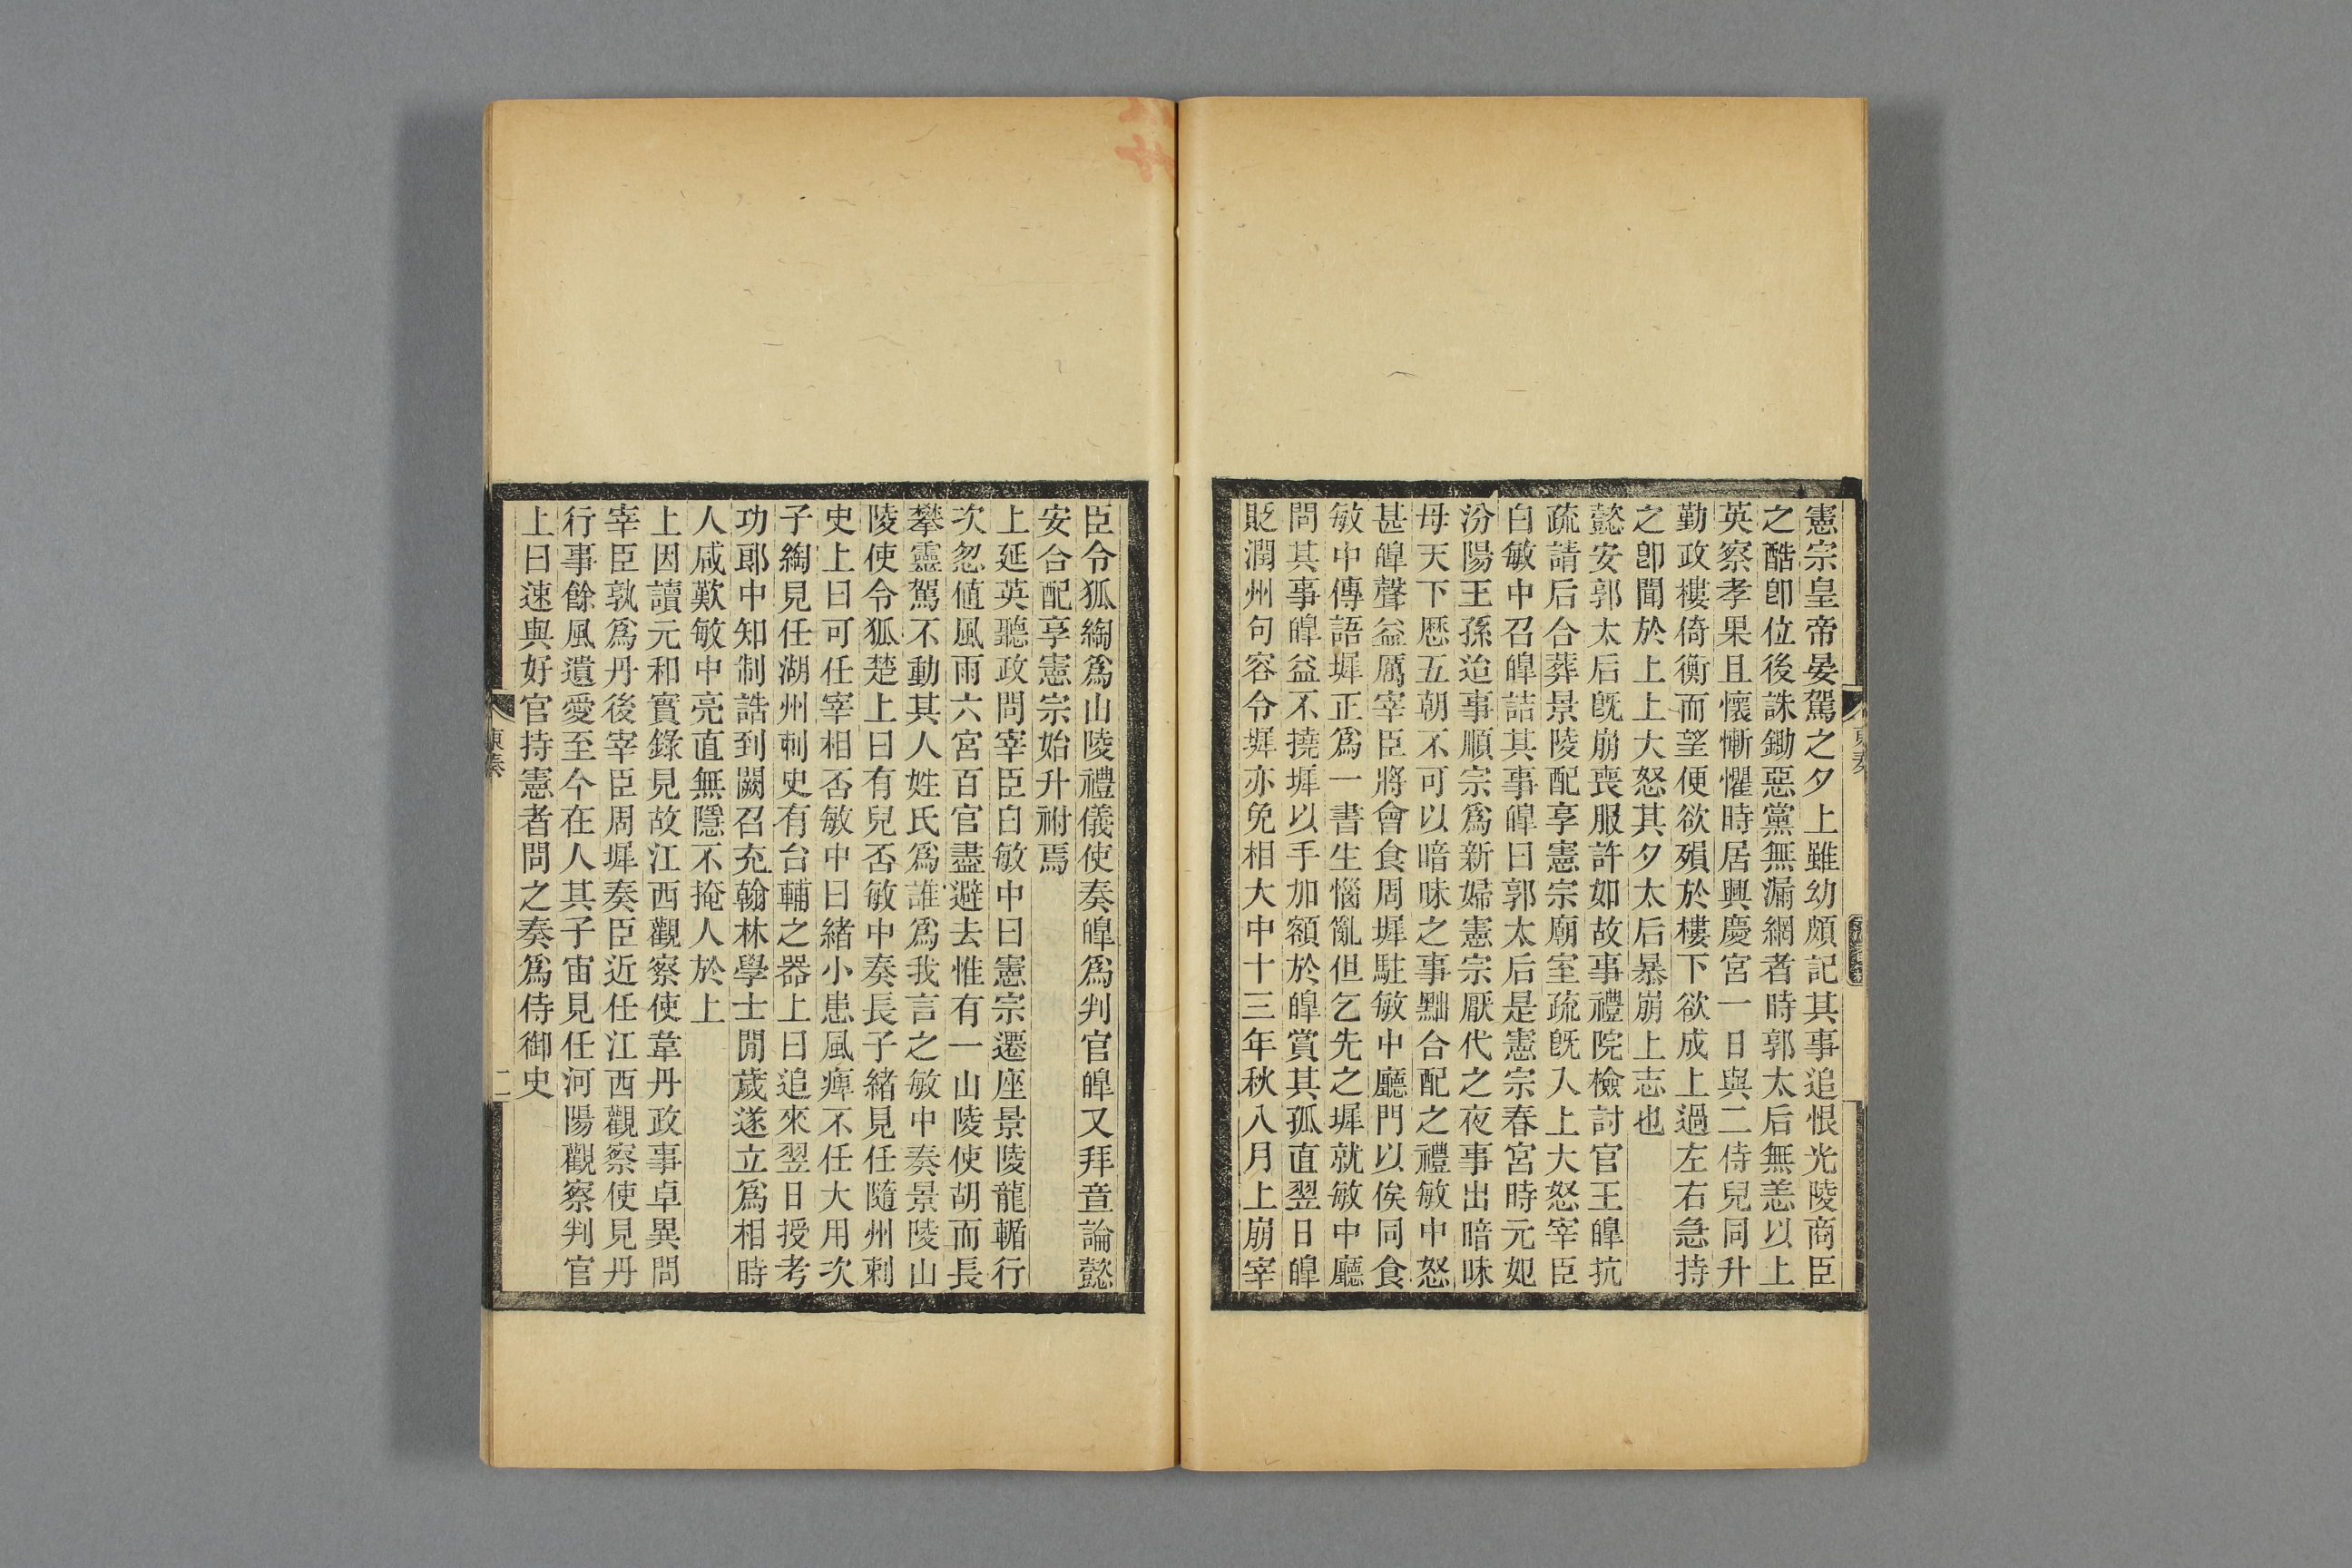 憲宗皇帝晏駕之夕上雖幼頗記其事追恨光陵商臣
之酷卽位後誅鋤惡黨無漏網者時郭太后無恙以上
英察孝果且懷慚懼時居興慶宮一日與二侍兒同升
勤政樓倚衡而望便欲殞於樓下欲成上過左右急持
之卽聞於上上大怒其夕太后暴崩上志也
懿安郭太后旣崩喪服許如故事禮院檢討官王皥抗
疏請后合葬景陵配享憲宗廟室疏旣入上大怒宰臣
白敏中召皥詰其事皥曰郭太后是憲宗春宮時元妃
汾陽王孫迨事順宗爲新婦憲宗厭代之夜事出暗昧
母天下歷五朝不可以暗昧之事黜合配之禮敏中怒
甚皥聲益厲宰臣將會食周墀駐敏中廳門以俟同食
敏中傳語墀正爲一書生惱亂但乞先之墀就敏中廳
問其事皥益不撓墀以手加額於皥賞其孤直翌日皥
貶潤州句容令墀亦免相大中十三年秋八月上崩宰
臣令狐綯爲山陵禮儀使奏皥爲判官皥又拜章論懿
安合配享憲宗始升祔焉
上延英聽政問宰臣白敏中曰憲宗遷座景陵龍輴行
次忽値風雨六宮百官盡避去惟有一山陵使胡而長
攀靈駕不動其人姓氏爲誰爲我言之敏中奏景陵山
陵使令狐楚上曰有兒否敏中奏長子緒見任隨州刺
史上曰可任宰相否敏中曰緒小患風痺不任大用次
子綯見任湖州刺史有台輔之器上曰追來翌日授考
功郎中知制誥到闕召充翰林學士閒歲遂立爲相時
人咸歎敏中亮直無隱不掩人於上
上因讀元和實錄見故江西觀察使韋丹政事卓異問
宰臣孰爲丹後宰臣周墀奏臣近任江西觀察使見丹
行事餘風遺愛至今在人其子宙見任河陽觀察判官
上曰速與好官持憲者問之奏爲侍御史
東奏
二